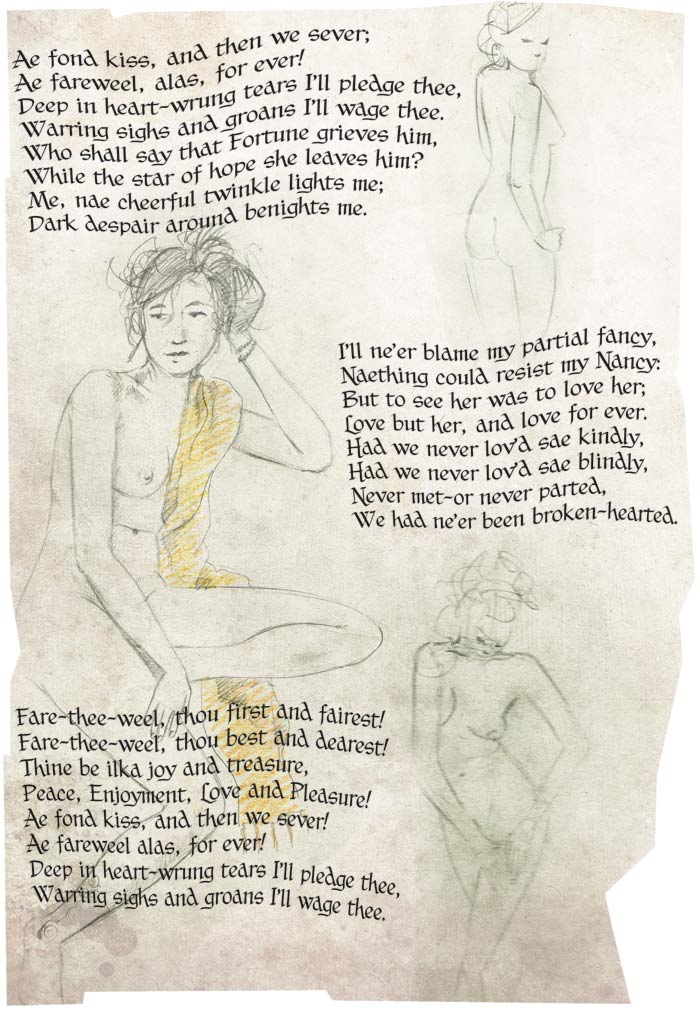 Ae fond kiss, and then we sever;
Ae fareweel, alas, for ever!
Deep in heart-wrung tears I'll pledge thee,
Warring sighs and groans I'll wage thee.
Who shall say that Fortune grieves him,
While the star of hope she leaves him?
Me, nae cheerful twinkle lights me;
Dark despair around benights me.
I'll ne'er blame my partial fancy,
Naething could resist my Nancy:
But to see her was to love her;
Love but her, and love for ever.
Had we never lov'd sae kindly,
Had we never lov'd sae blindly,
Never met-or never parted,
We had ne'er been broken-hearted.
Fare-thee-weel, thou first and fairest!
Fare-thee-weel, thou best and dearest!
Thine be ilka joy and treasure,
Peace, Enjoyment, Love and Pleasure!
Ae fond kiss, and then we sever!
Ae fareweel alas, for ever!
Deep in heart-wrung tears I'll pledge thee,
Warring sighs and groans I'll wage thee.